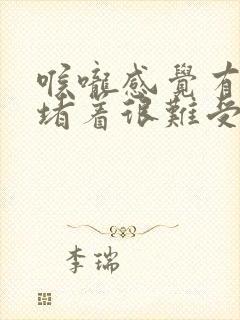 喉嚨感覺有
堵着很難受
李瑞